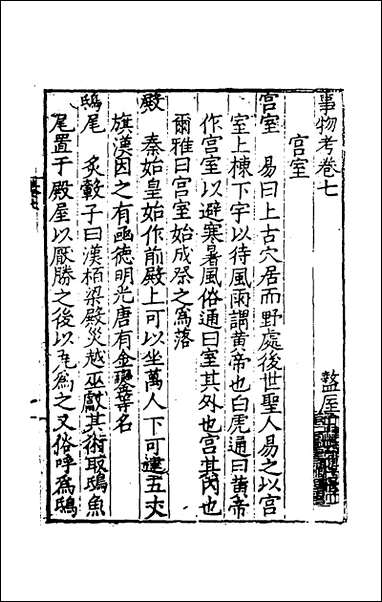 事物考卷七
宮室
宮室　易曰上古穴居而野處後世聖人易之以宮
室上棟下宇以待風雨謂黃帝也白虎通曰黃帝
作宮室以避寒暑風俗通曰室其外也宮其內也
爾雅曰宮室始成祭之為落
殿　秦始皇始作前殿上可以坐萬人下可建五丈
旗漢因之有函德明光唐有金鑾等名
鴟尾　炙轂子曰漢栢梁殿災越巫獻其術取鴟魚
尾置于殿屋以厭勝之後以瓦為之又俗呼為鴟